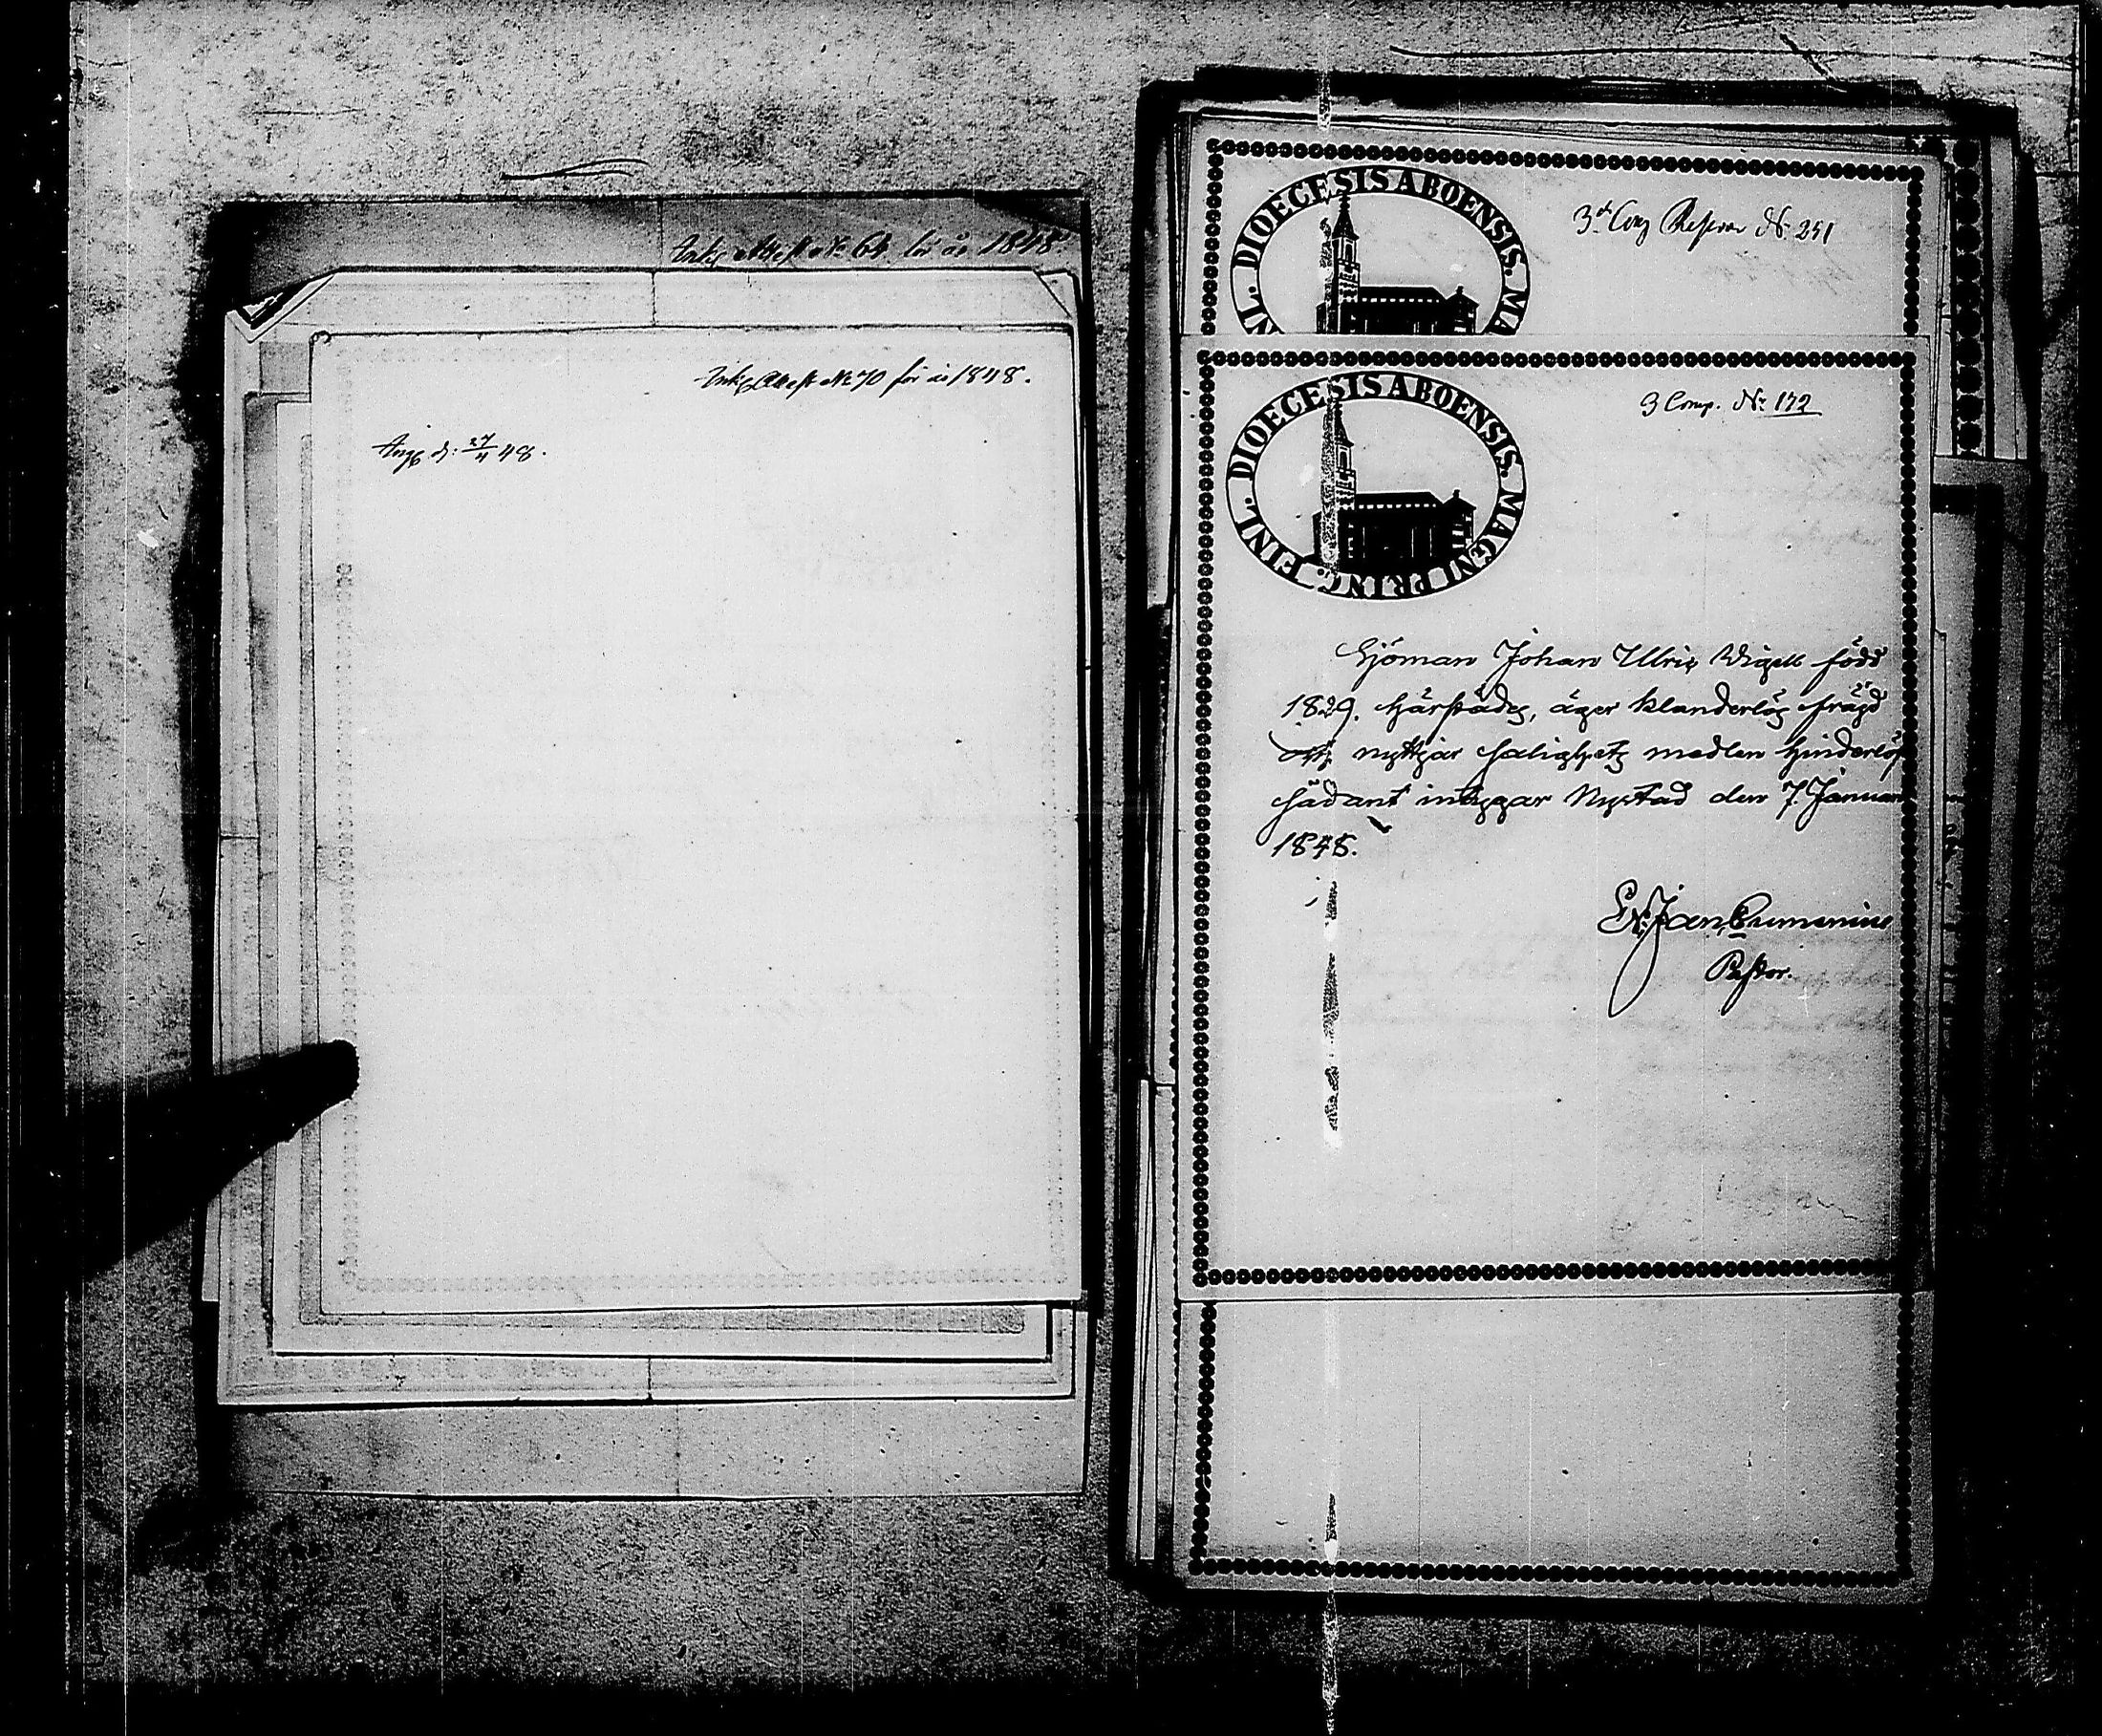 Inkg Attest No 64 för år 1848.
Inkg Attest No 70 för år 1848.
Angf d: 27/4 48.
DIOECESIS ABOENSIS. MA
INL.
3de Comp Reserv No 251
DIOECESIS ABOENSIS. MAGNI PRINC. FINL.
3 Comp. No 172
Sjöman Johan Ulric Wigell född
1829. härstädes, äger klanderlös frägd
och nyttjar salighets medlen hinderlöst
sådant intygar Nystad den 7. Januari
1848.
Pastor.